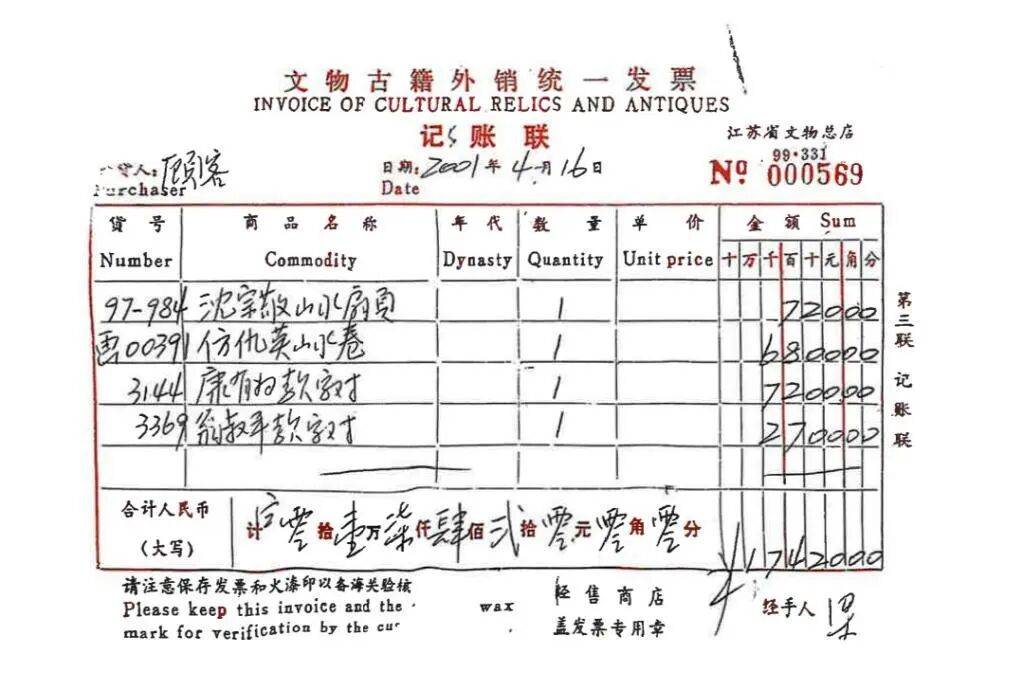 文物古籍外销统一发票
INVOICE OF CULTURAL RELICS AND ANTIQUES
记账联
江苏省文物总店
货人: 顾客 日期: 2001年4月16日 99·331
Purchaser Date Nº 000569
货号 商品名称 年代 数量 单价 金额 Sum
Number Commodity Dynasty Quantity Unit price 十万千百十元角分
97-984 沈宗敬山水扇页 1 72000
画00391 仿仇英山水卷 1 680000
3144 康有为款字对 1 720000
3369 翁叔平款字对 1 270000
合计人民币(大写) 计零拾壹万柒仟肆佰贰拾零元零角零分 ¥1742000
第三联 记账联
请注意保存发票和火漆印以备海关验核
Please keep this invoice and the wax
mark for verification by the cu
经售商店
盖发票专用章
经手人